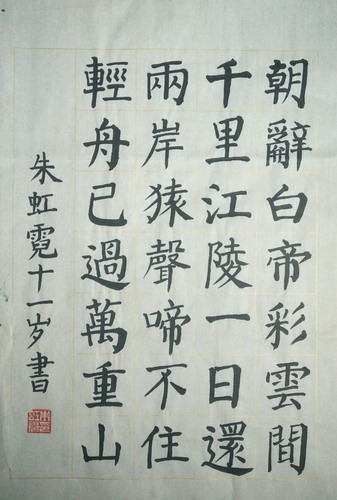 朝辭白帝彩雲間
千里江陵一日還
兩岸猿聲啼不住
輕舟已過萬重山
朱虹霓十一岁書